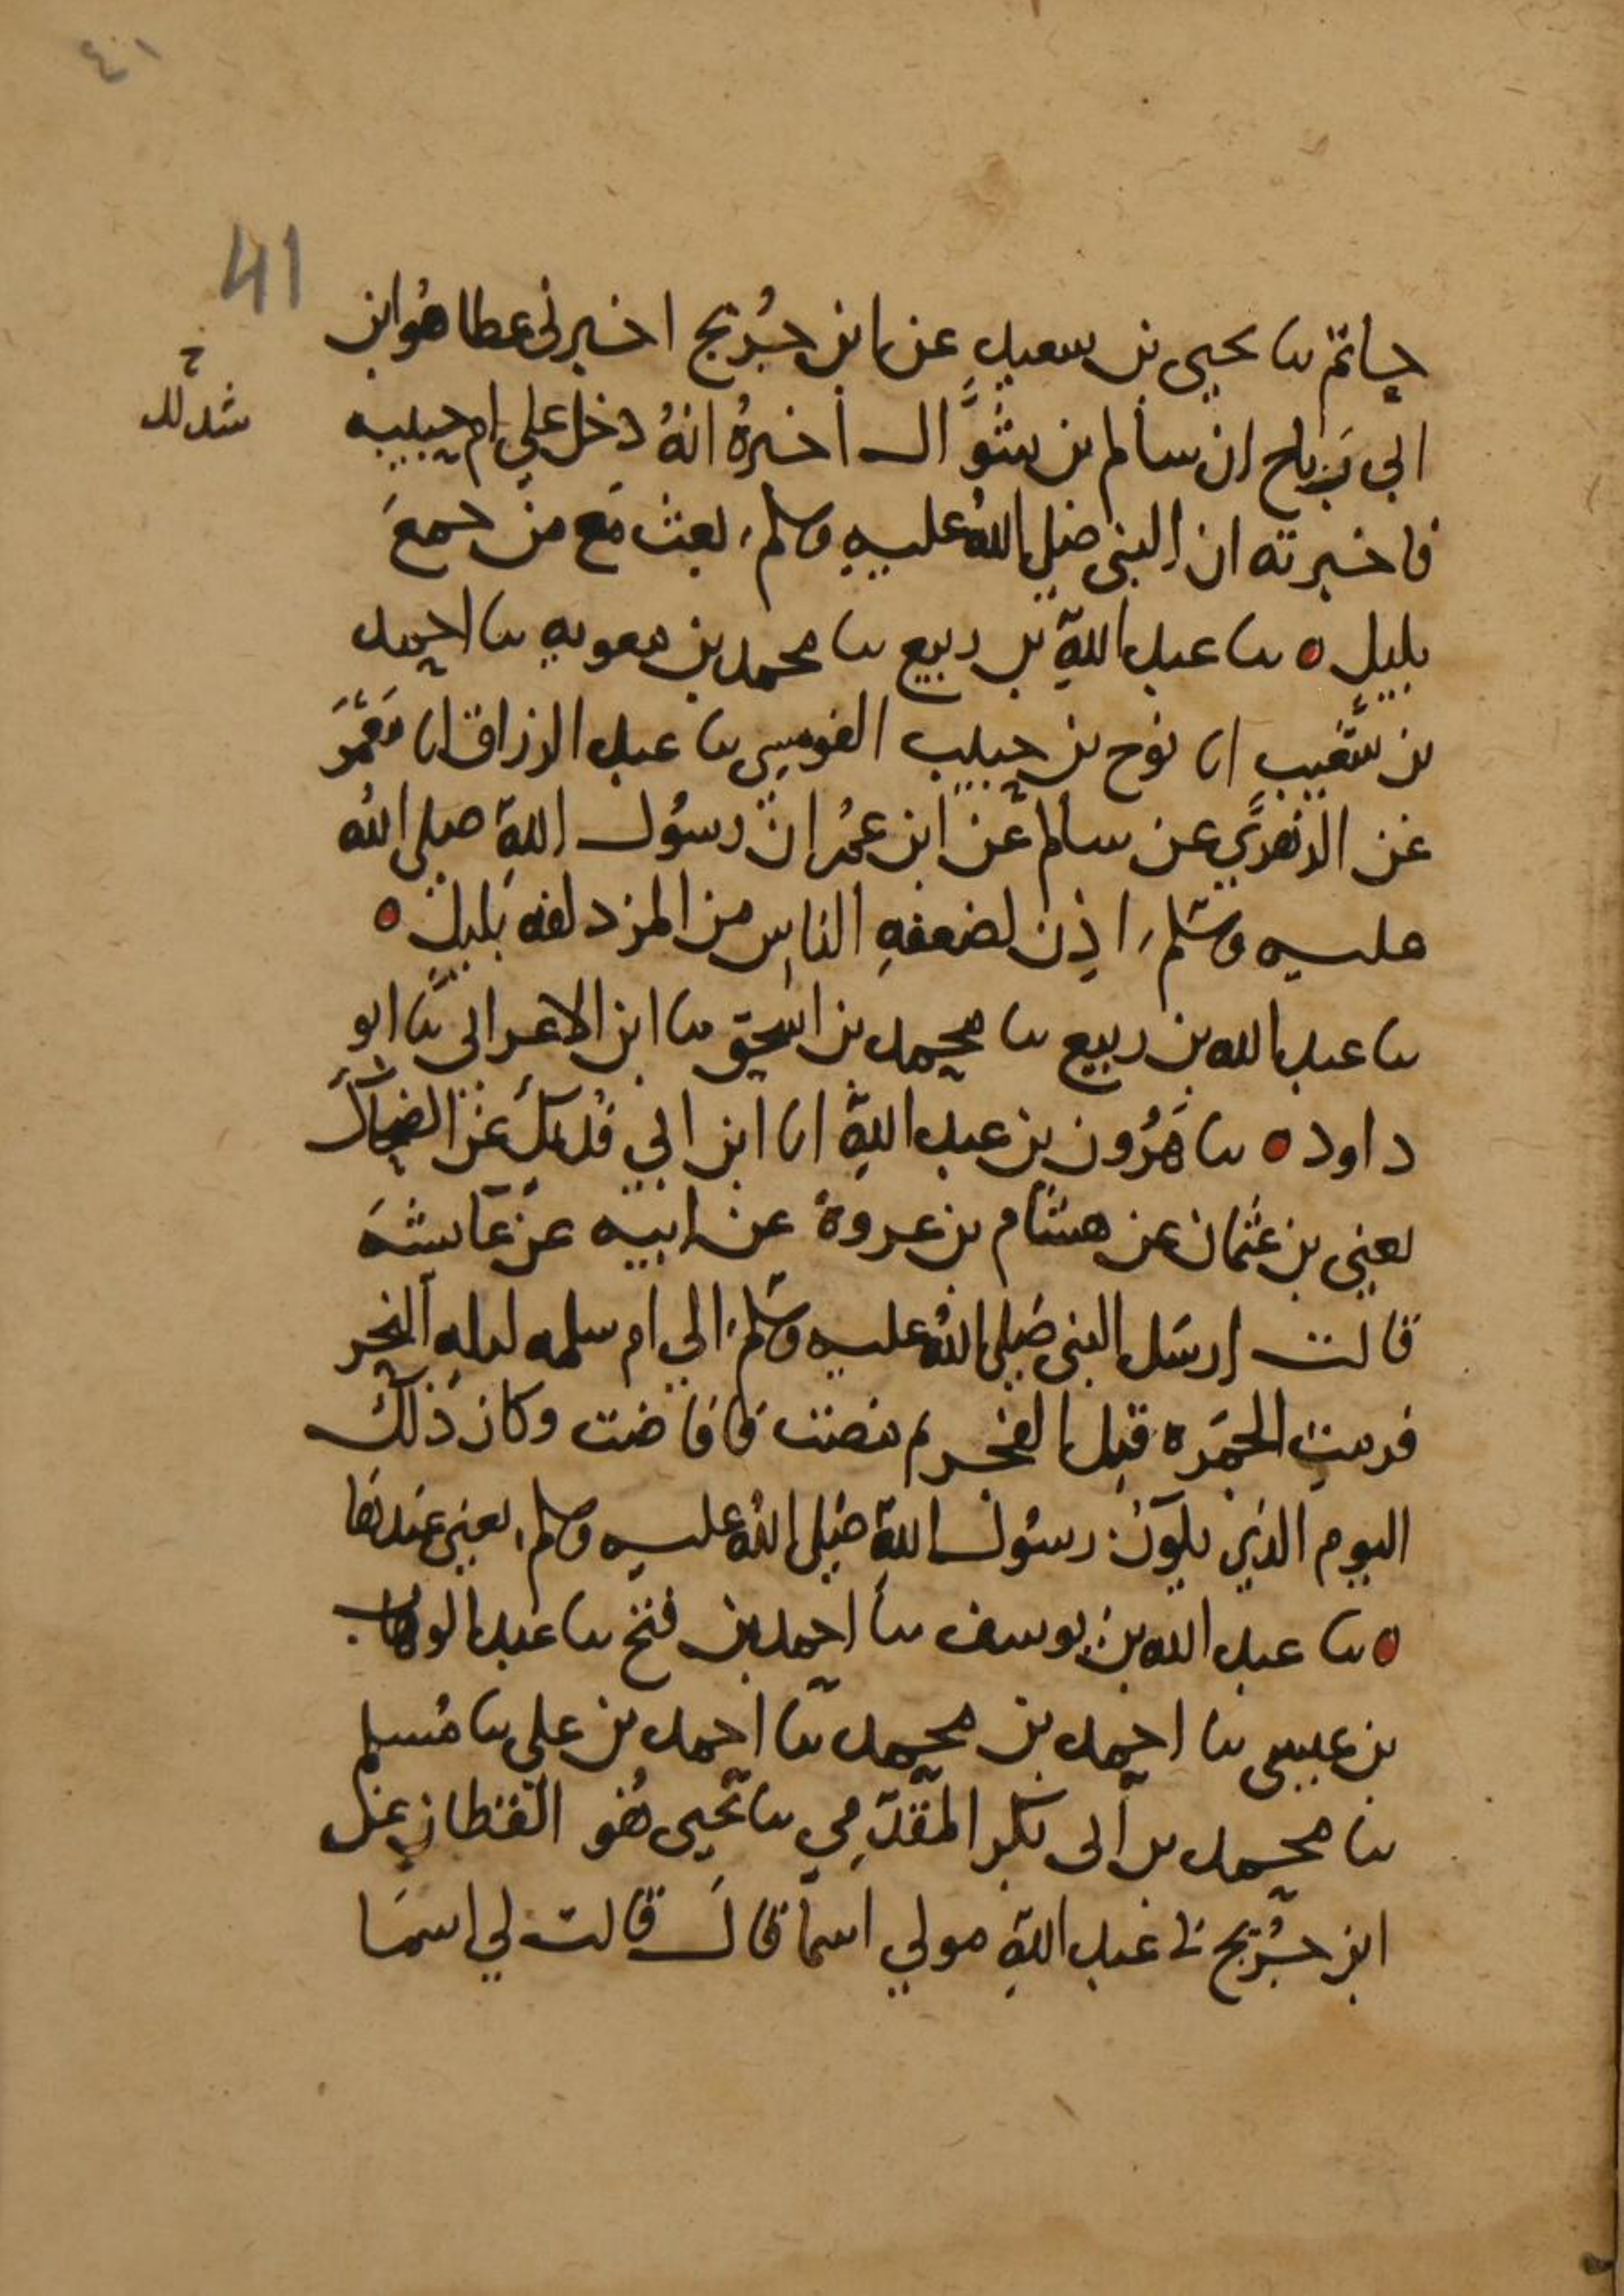 ٤١
41
حاتم ثنا يحيى بن سعيد عن ابن جُريج اخبرني عطا هُوابن
ابي رَباح ان سالم بن شوَّال اخبرهُ انهُ دخل علي ام حبيبه
فاخبرته ان النبي صلي اللهُ عليهِ وسلم، بعث مَع من جمعَ
بليلٍ ه ثنا عبد اللهِ بن ربيع ثنا محمد بن معويه ثنا احمد
بن شعيب انا نوح بن حبيب القومسي ثنا عبد الرزاق انا مَعْمَر
عن الزهريِّ عن سالم عن ابن عمُر ان رسُول اللهِ صلي اللهُ
عليه وسَلم، اذِن لضعفهِ الناسِ من المزدلفه بليلٍ ه
ثنا عبد الله بن ربيع ثنا محمد بن اسحق ثنا ابن الاعرابي ثنا ابو
داود ه ثنا هَرُون بن عبد اللهِ انا ابن ابي فُديك عن الضحاك
يعني بن عثمان عن هشام بن عروة عن ابيه عن عَايشهَ
قالت ارسَل النبي صَلي اللهُ عليه وسَلم، الي ام سلمه ليله النحر
فرمتِ الجمَره قبل الفجر ثم مضت فافاضت وكان ذلك
اليوم الذِي يكون رسوُل اللهِ صَلي اللهُ عليه وسلم، يعني عندها
ه ثنا عبد الله بن يوسف ثنا احمد بن فتح ثنا عبد الوهاب
بن عيسي ثنا احمد بن محمد ثنا احمد بن علي ثنا مُسلم
ثنا محمد بن ابي بكر المقدّمِي ثنا يَحيى هُو القطان عن
ابن جُريج ني عبد اللهِ مولي اسما قالَ قالت لي اسمَا